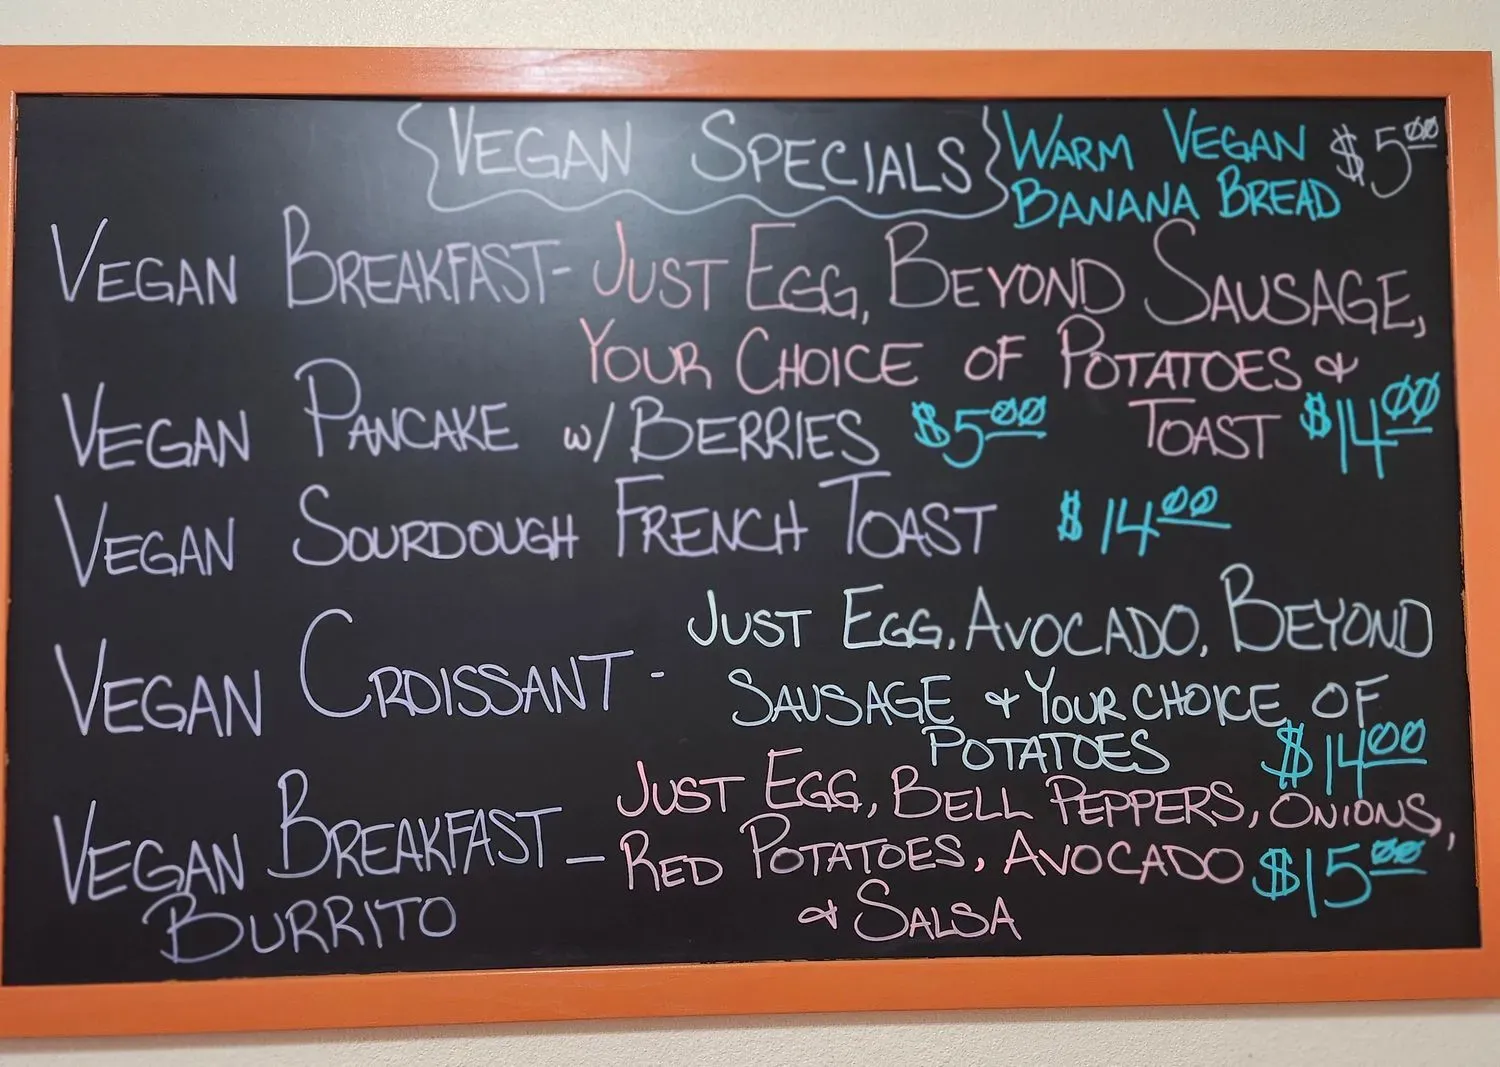 VEGAN SPECIALS
WARM VEGAN $5.00
BANANA BREAD
VEGAN BREAKFAST- JUST EGG, BEYOND SAUSAGE,
YOUR CHOICE OF POTATOES &
TOAST $14.00
VEGAN PANCAKE w/BERRIES $5.00
VEGAN SOURDOUGH FRENCH TOAST $14.00
VEGAN CROISSANT - JUST EGG, AVOCADO, BEYOND
SAUSAGE & YOUR CHOICE OF
POTATOES $14.00
VEGAN BREAKFAST – JUST EGG, BELL PEPPERS, ONIONS,
BURRITO RED POTATOES, AVOCADO, $15.00
& SALSA